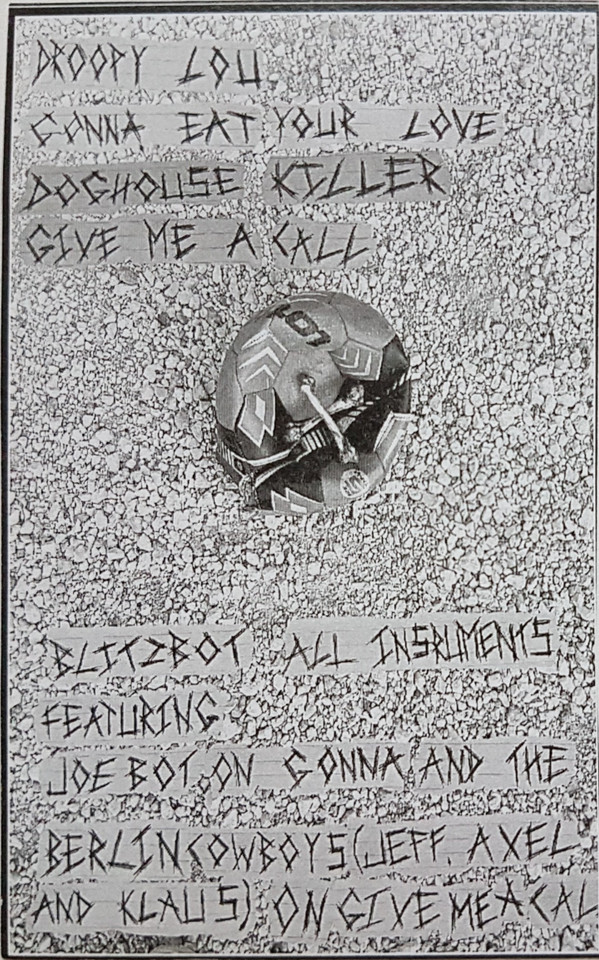 DROOPY LOU
GONNA EAT YOUR LOVE
DOGHOUSE KILLER
GIVE ME A CALL
BLITZBOT ALL INSRUMENTS
FEATURING
JOE BOT ON GONNA AND THE
BERLIN COWBOYS (JEFF, AXEL
AND KLAUS) ON GIVE ME A CAL